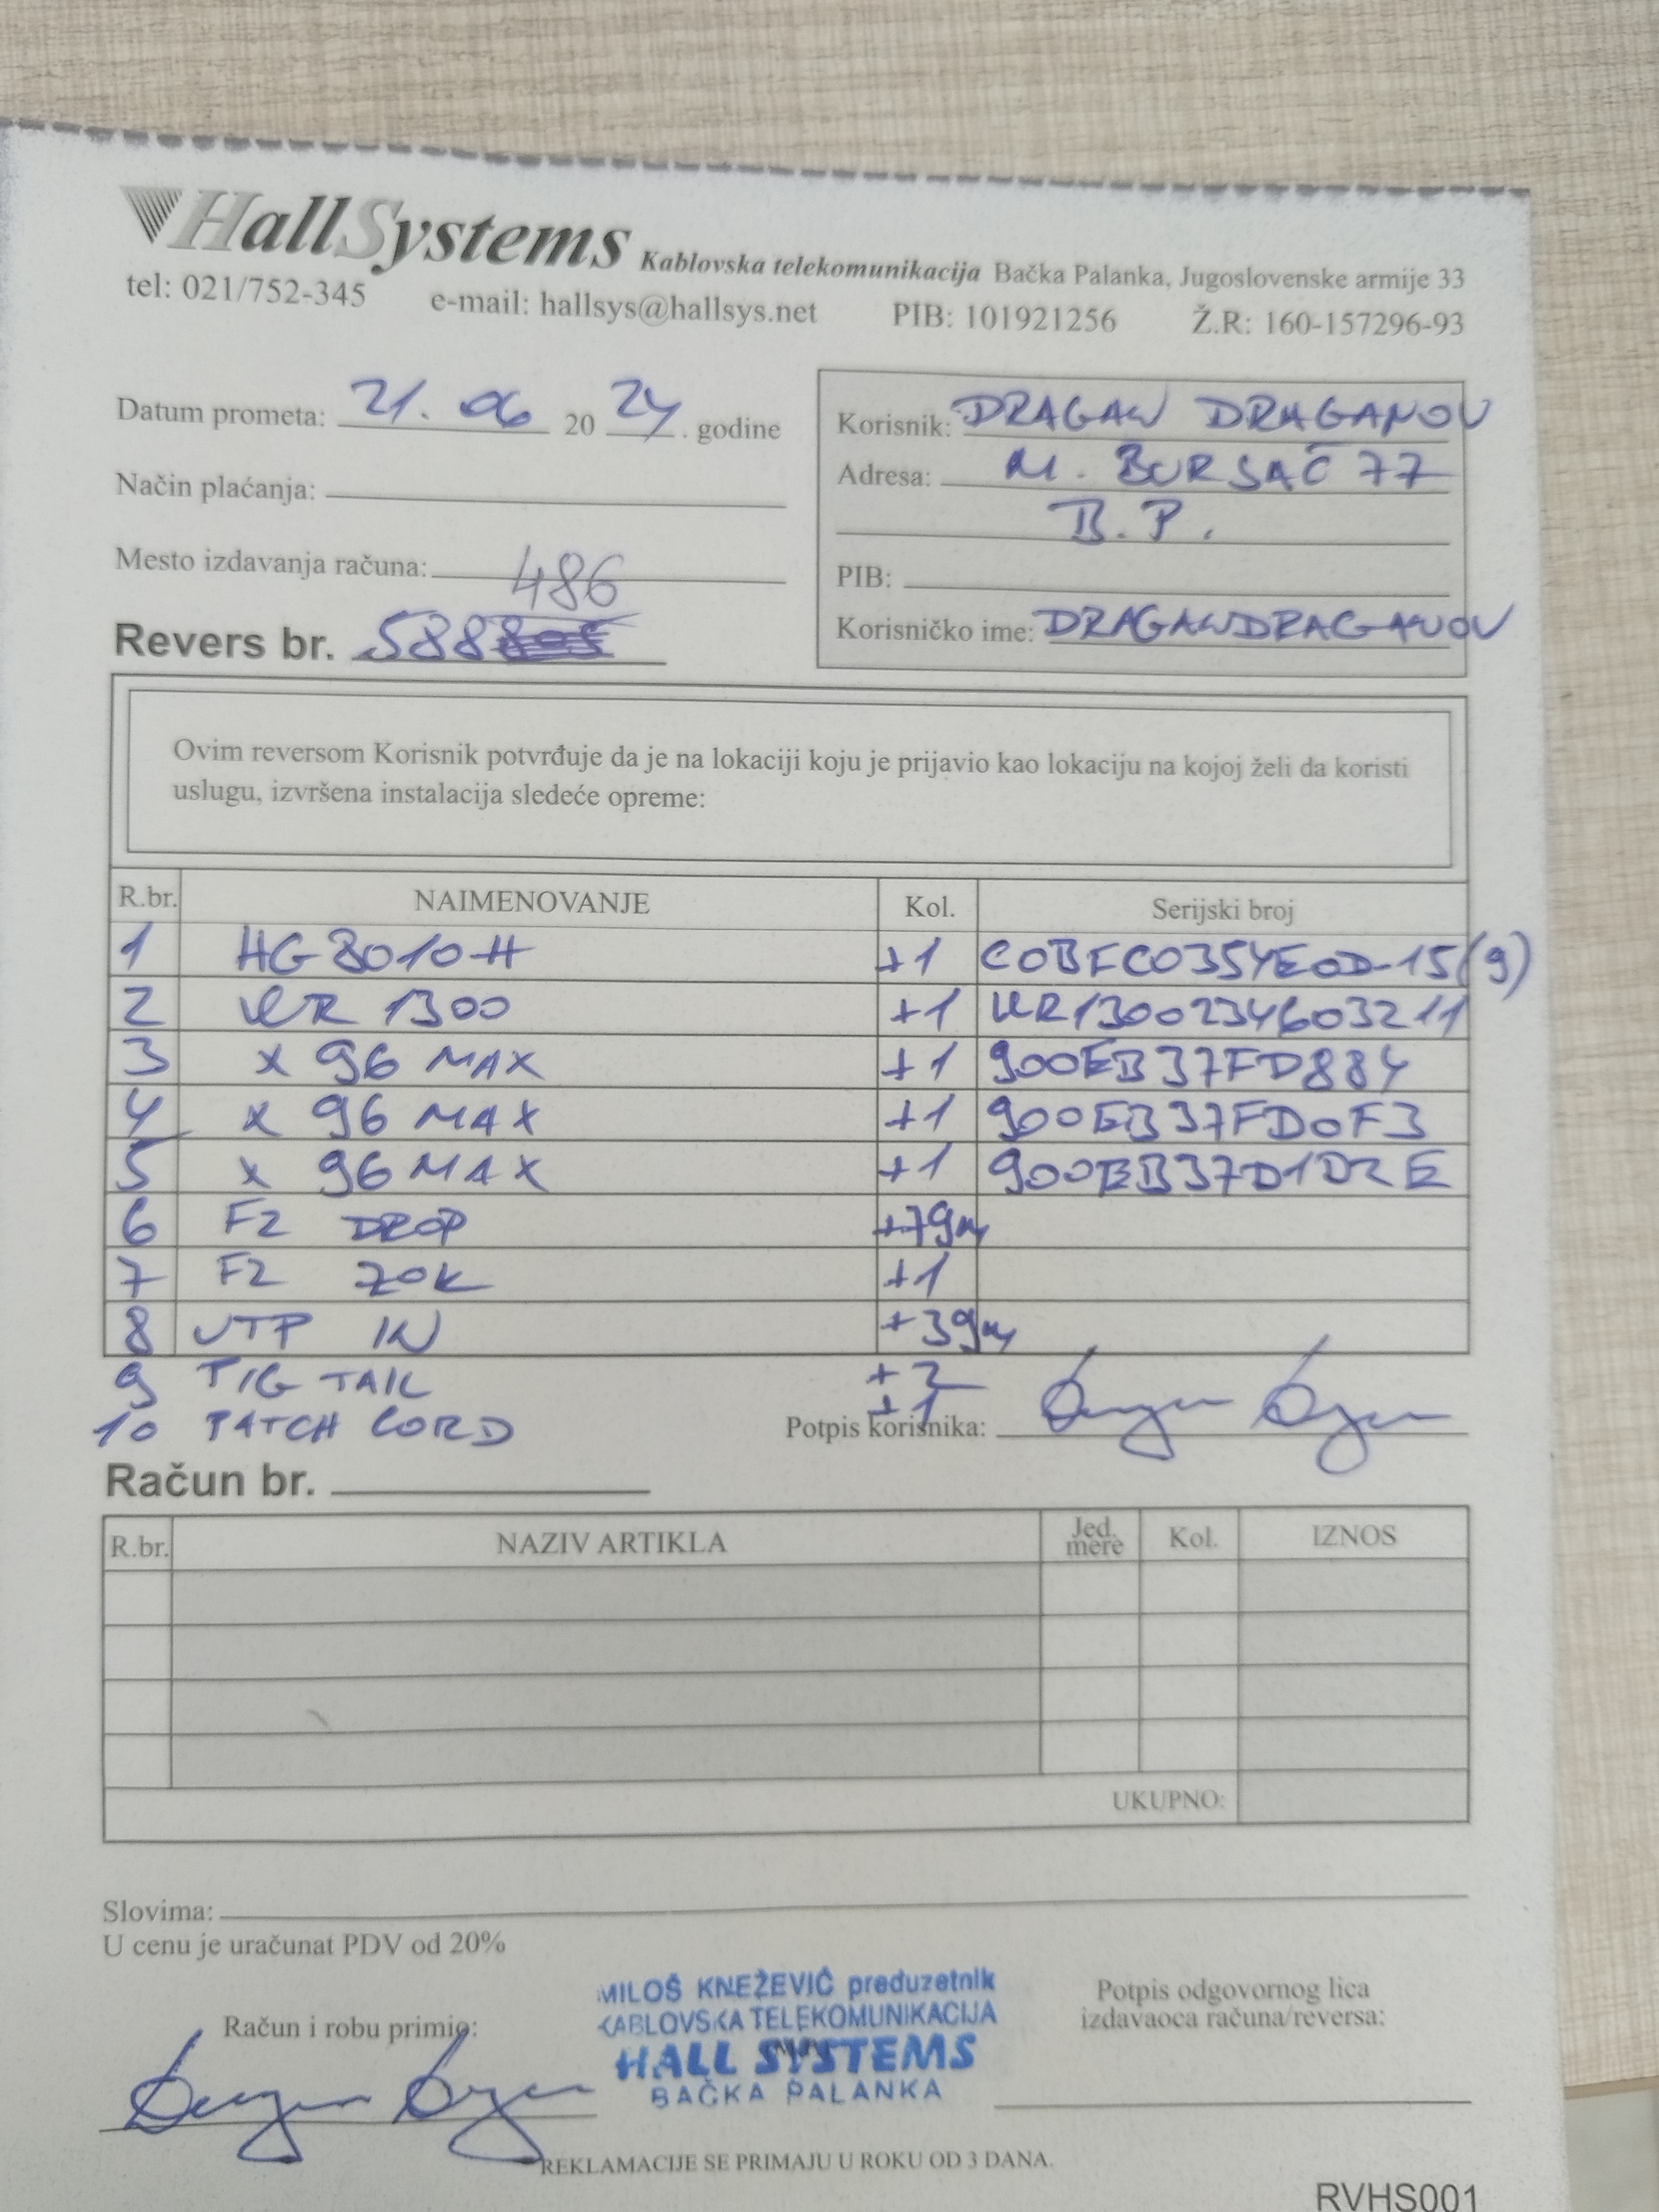 HallSystems Kablovska telekomunikacija Bačka Palanka, Jugoslovenske armije 33
tel: 021/752-345 e-mail: hallsys@hallsys.net PIB: 101921256 Ž.R: 160-157296-93
Datum prometa: 21. 06 20 24. godine
Način plaćanja:
Mesto izdavanja računa:
486
Revers br. 588
Korisnik: DRAGAN DRAGANOV
Adresa: M. BURSAĆ 77
B.P.
PIB:
Korisničko ime: DRAGANDRAGANOV
Ovim reversom Korisnik potvrđuje da je na lokaciji koju je prijavio kao lokaciju na kojoj želi da koristi
uslugu, izvršena instalacija sledeće opreme:
R.br. NAIMENOVANJE Kol. Serijski broj
1 HG8010H +1 C0BFC0354E0D-15(9)
2 KR 1300 +1 KR1300234603211
3 X 96 MAX +1 900EB37FD884
4 X 96 MAX +1 900EB37FD0F3
5 X 96 MAX +1 900EB37D1D2E
6 F2 DROP +79m
7 F2 ZOK +1
8 UTP IN +39m
9 PIG TAIL +2
10 PATCH CORD +1
Potpis korisnika:
Račun br.
R.br. NAZIV ARTIKLA Jed. mere Kol. IZNOS
UKUPNO:
Slovima:
U cenu je uračunat PDV od 20%
Račun i robu primio:
MILOŠ KNEŽEVIĆ preduzetnik
KABLOVSKA TELEKOMUNIKACIJA
HALL SYSTEMS
BAČKA PALANKA
Potpis odgovornog lica
izdavaoca računa/reversa:
REKLAMACIJE SE PRIMAJU U ROKU OD 3 DANA.
RVHS001